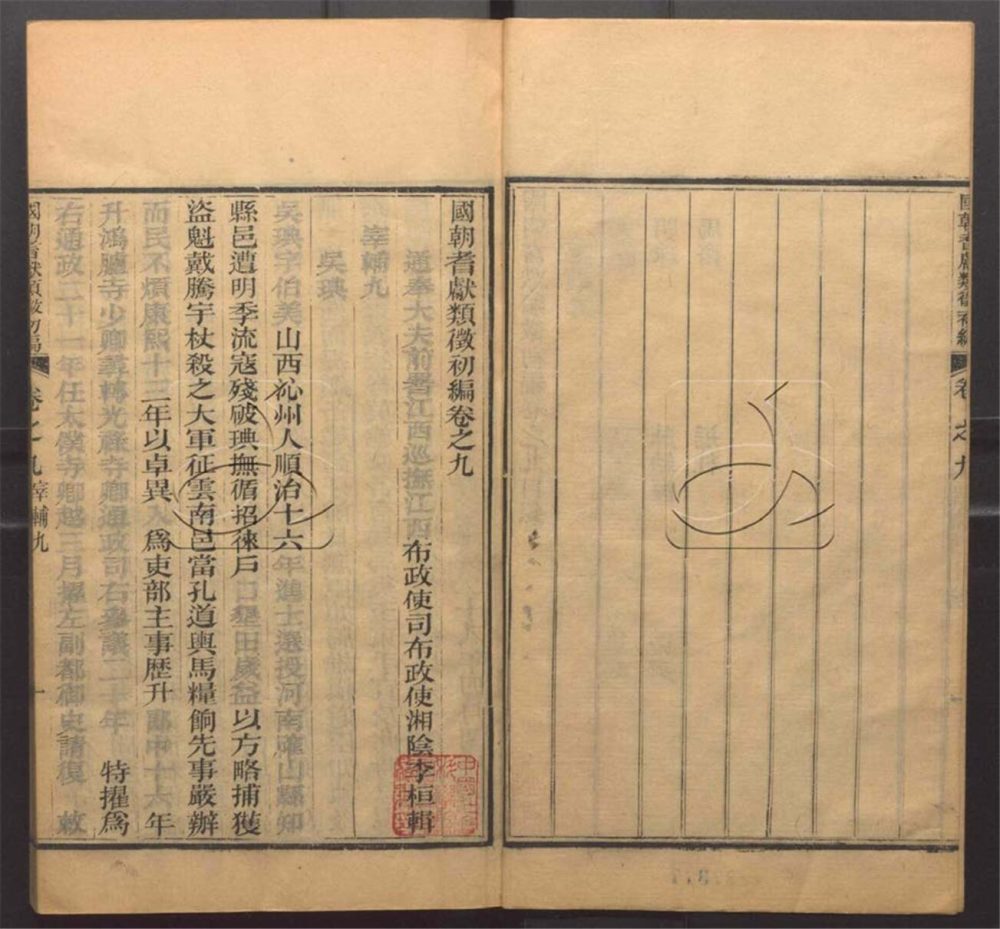 國朝耆獻類徵初編卷之九
通奉大夫前署江西巡撫江西布政使司布政使湘陰李桓輯
宰輔九
吳琠
吳琠字伯美山西沁州人順治十六年進士選授河南確山縣知
縣邑遭明季流寇殘破琠撫循招徠戶口墾田歲益以方略捕獲
盜魁戴騰宇杖殺之大軍征雲南邑當孔道輿馬糧餉先事嚴辦
而民不煩康熙十三年以卓異入為吏部主事歷升郎中十六年
升鴻臚寺少卿尋轉光祿寺卿通政司右參議二十年特擢為
右通政二十一年任太僕寺卿越三月擢左副都御史請復 敕
國朝耆獻類徵初編 卷之九 宰輔九 一
國朝耆獻類徵初編 卷之九